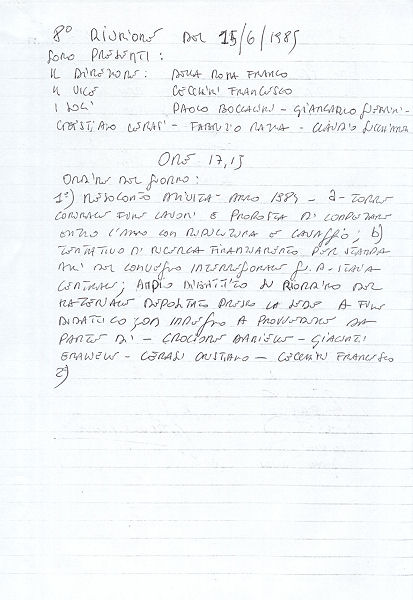 8° RIUNIONE DEL 15/6/1985
SONO PRESENTI:
IL DIRETTORE: DELLA ROSA FRANCO
IL VICE CECCHINI FRANCESCO
I SOCI PAOLO BOCCALINI - GIANCARLO
CRISTIANO CERASI - FABRIZIO - CLAUDIO
ORE 17,15
ORDINE DEL GIORNO:
1°) RESOCONTO ATTIVITA - ANNO 1984 - a - TORRE
FINE LAVORI E PROPOSTA DI COMPLETARE
ENTRO L'ANNO CON RIPULITURA E LAVAGGIO; b)
TENTATIVO DI RICERCA FINANZIAMENTO PER STAMPA
ATTI DEL CONVEGNO INTERREGIONALE G. A. ITALIA
CENTRALE; AMPIO DIBATTITO SU RIORDINO DEL
MATERIALE DEPOSITATO PRESSO LA SEDE A FINE
DIDATTICO CON IMPEGNO A PROVVEDERE DA
PARTE DI - CROCIONE DANIELE - GIACINTI
- CERASI CRISTIANO - CECCHINI FRANCESCO
2)